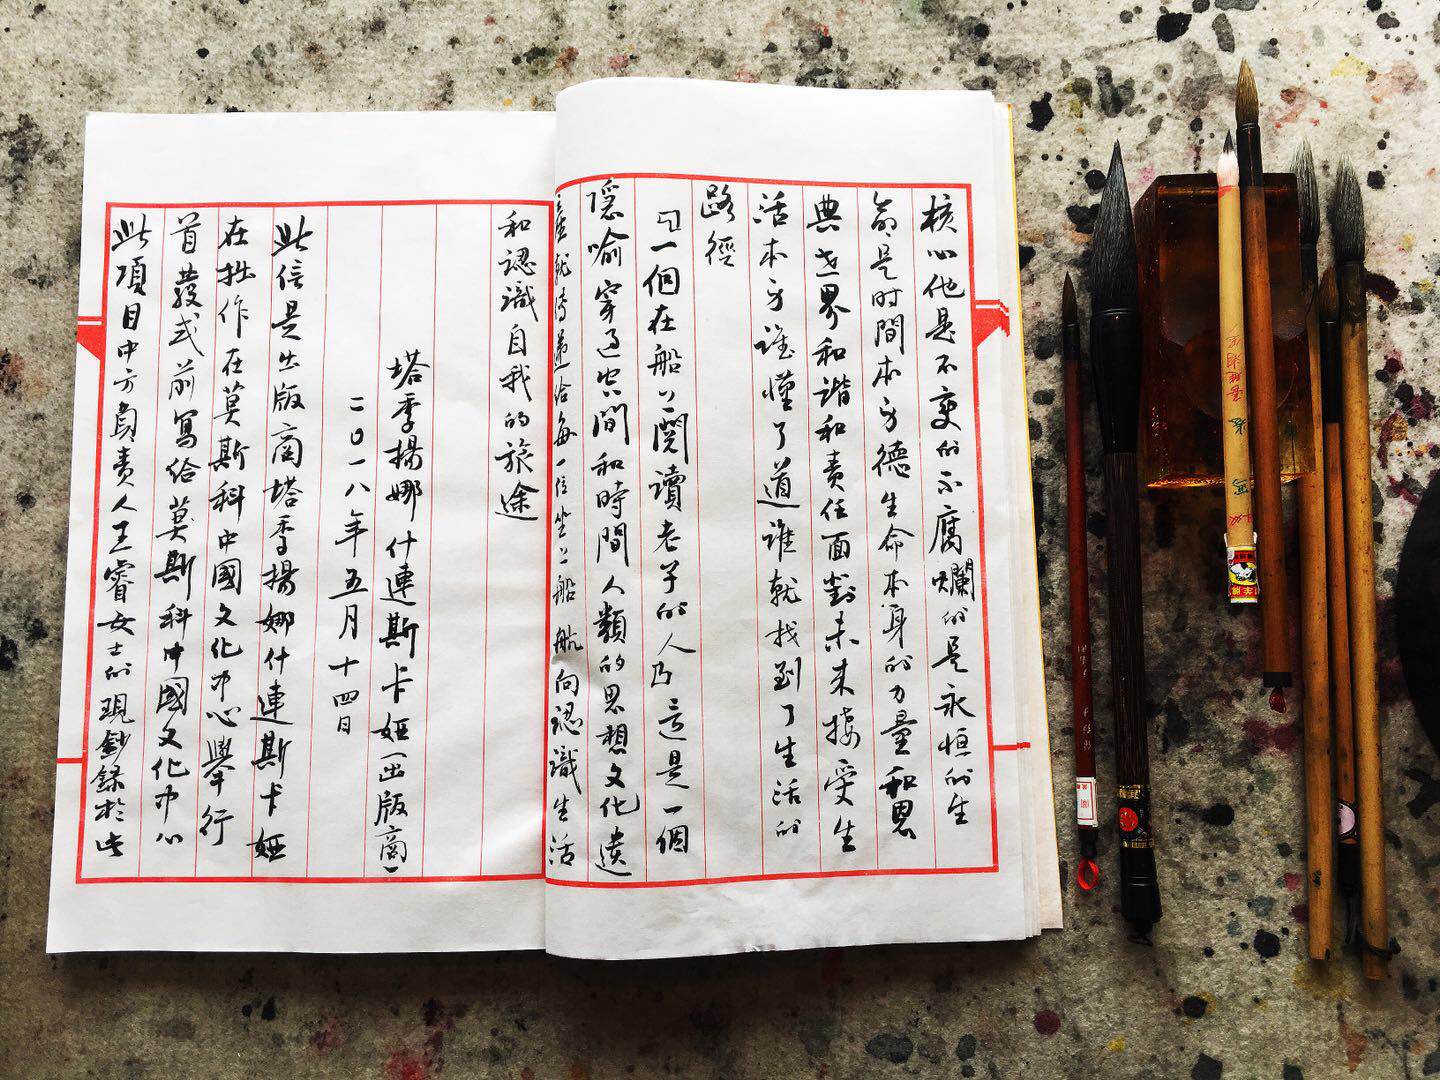 核心他是不变的不腐爛的是永恒的生
命是时間本身德生命本身的力量和恩
典世界和谐和責任面對未来接受生
活本身谁懂了道谁就找到了生活的
路徑
『一個在船上閱讀老子的人』這是一個
隐喻穿过空間和時間人類的思想文化遺
產就傳遞给每一位坐上船航向認識生活
和認識自我的旅途
塔季揚娜什連斯卡婭（出版商）
二〇一八年五月十四日
此信是出版商塔季揚娜什連斯卡婭
在拙作在莫斯科中國文化中心舉行
首發式前寫给莫斯科中國文化中心
此項目中方負责人王睿女士的現鈔録於此